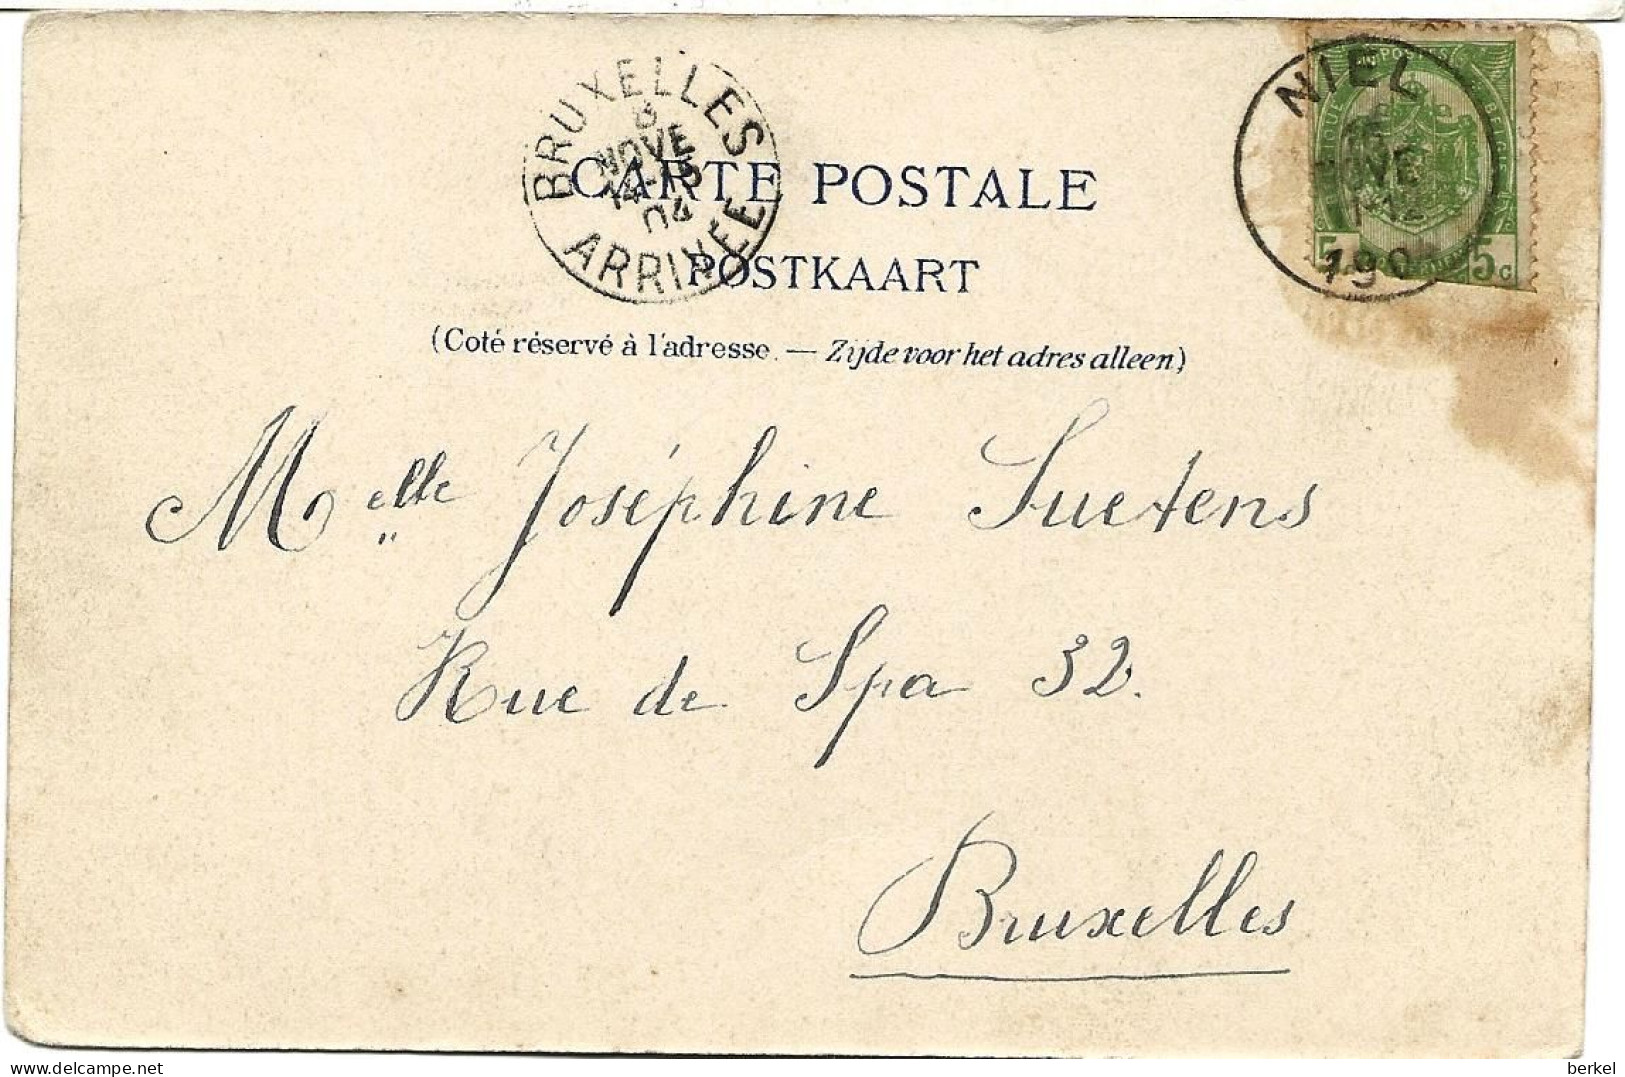 BRUXELLES
NOVE
04
ARRIVÉE
CARTE POSTALE
POSTKAART
(Coté réservé à l'adresse. — Zijde voor het adres alleen)
NIEL
POSTES
5 5c
Melle Joséphine Suetens
Rue de Spa 32.
Bruxelles
berkel